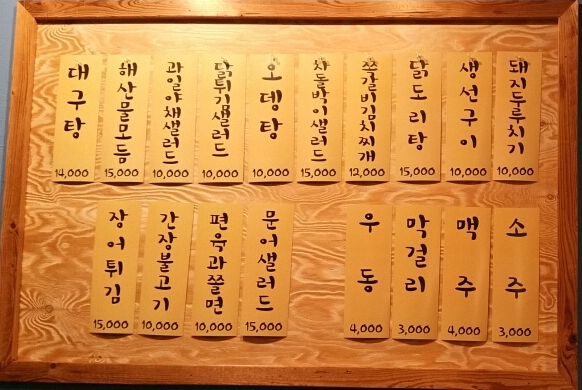 대구탕
14,000
해산물모듬
15,000
과일야채샐러드
10,000
닭튀김샐러드
10,000
오뎅탕
10,000
차돌박이샐러드
15,000
쪽갈비김치찌개
12,000
닭도리탕
15,000
생선구이
10,000
돼지두루치기
10,000
장어튀김
15,000
간장불고기
10,000
편육과쫄면
10,000
문어샐러드
15,000
우동
4,000
막걸리
3,000
맥주
4,000
소주
3,000